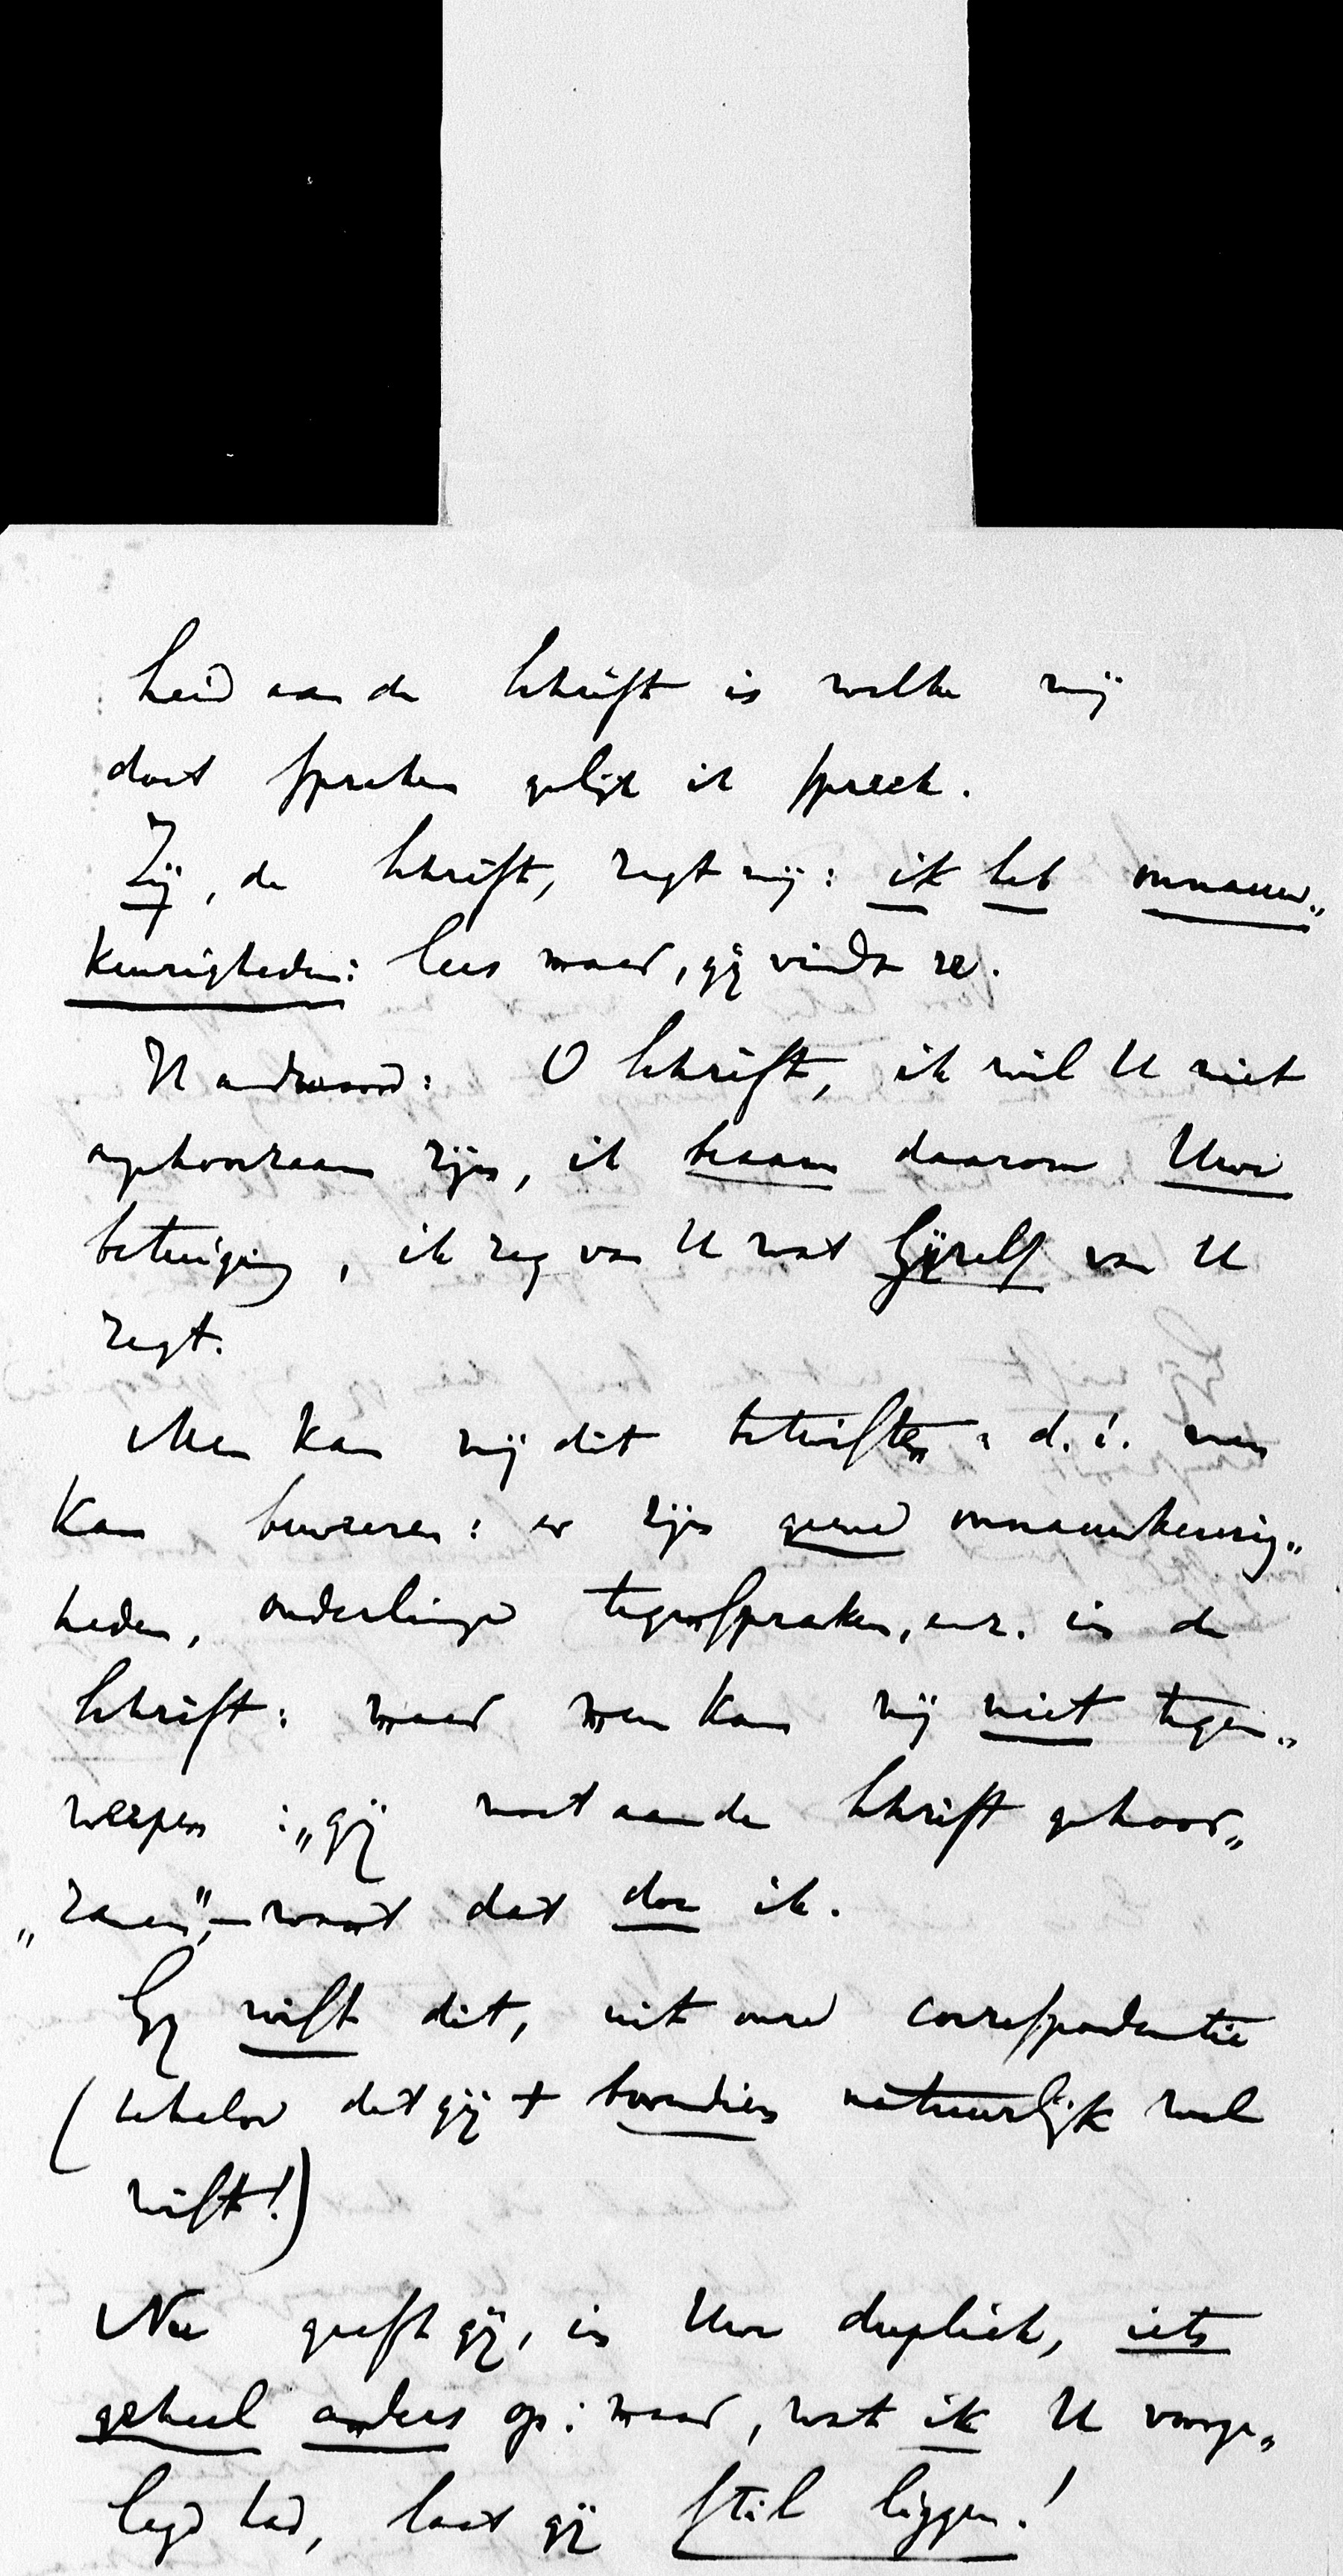 heid aan de Schrift is welke mij
doet spreken gelijk ik spreek.
Zij, de Schrift, zegt mij: ik heb onnauw„
keurigheden: lees maar, gij vindt ze.
Ik andwoord: O Schrift, ik wil U niet
ongehoorzaam zijn, ik beaam daarom Uwe
betuiging, ik zeg van U wat Gijzelf van U
zegt.
Men kan mij dit betwisten: d.i. men
kan beweeren: er zijn geene onnauwkeurig„
heden, onderlinge tegenspraken, enz. in de
Schrift: maar men kan mij niet tegen„
werpen: „gij moet aan de Schrift gehoor„
„zamen",— want dat doe ik.
Gij wist dit, uit onze correspondentie
(behalve dat gij 't bovendien natuurlijk wel
wist!)
Nu geeft gij, in Uwe dupliek, iets
geheel anders op: maar, wat ik U voorge„
legd had, laat gij stil liggen!